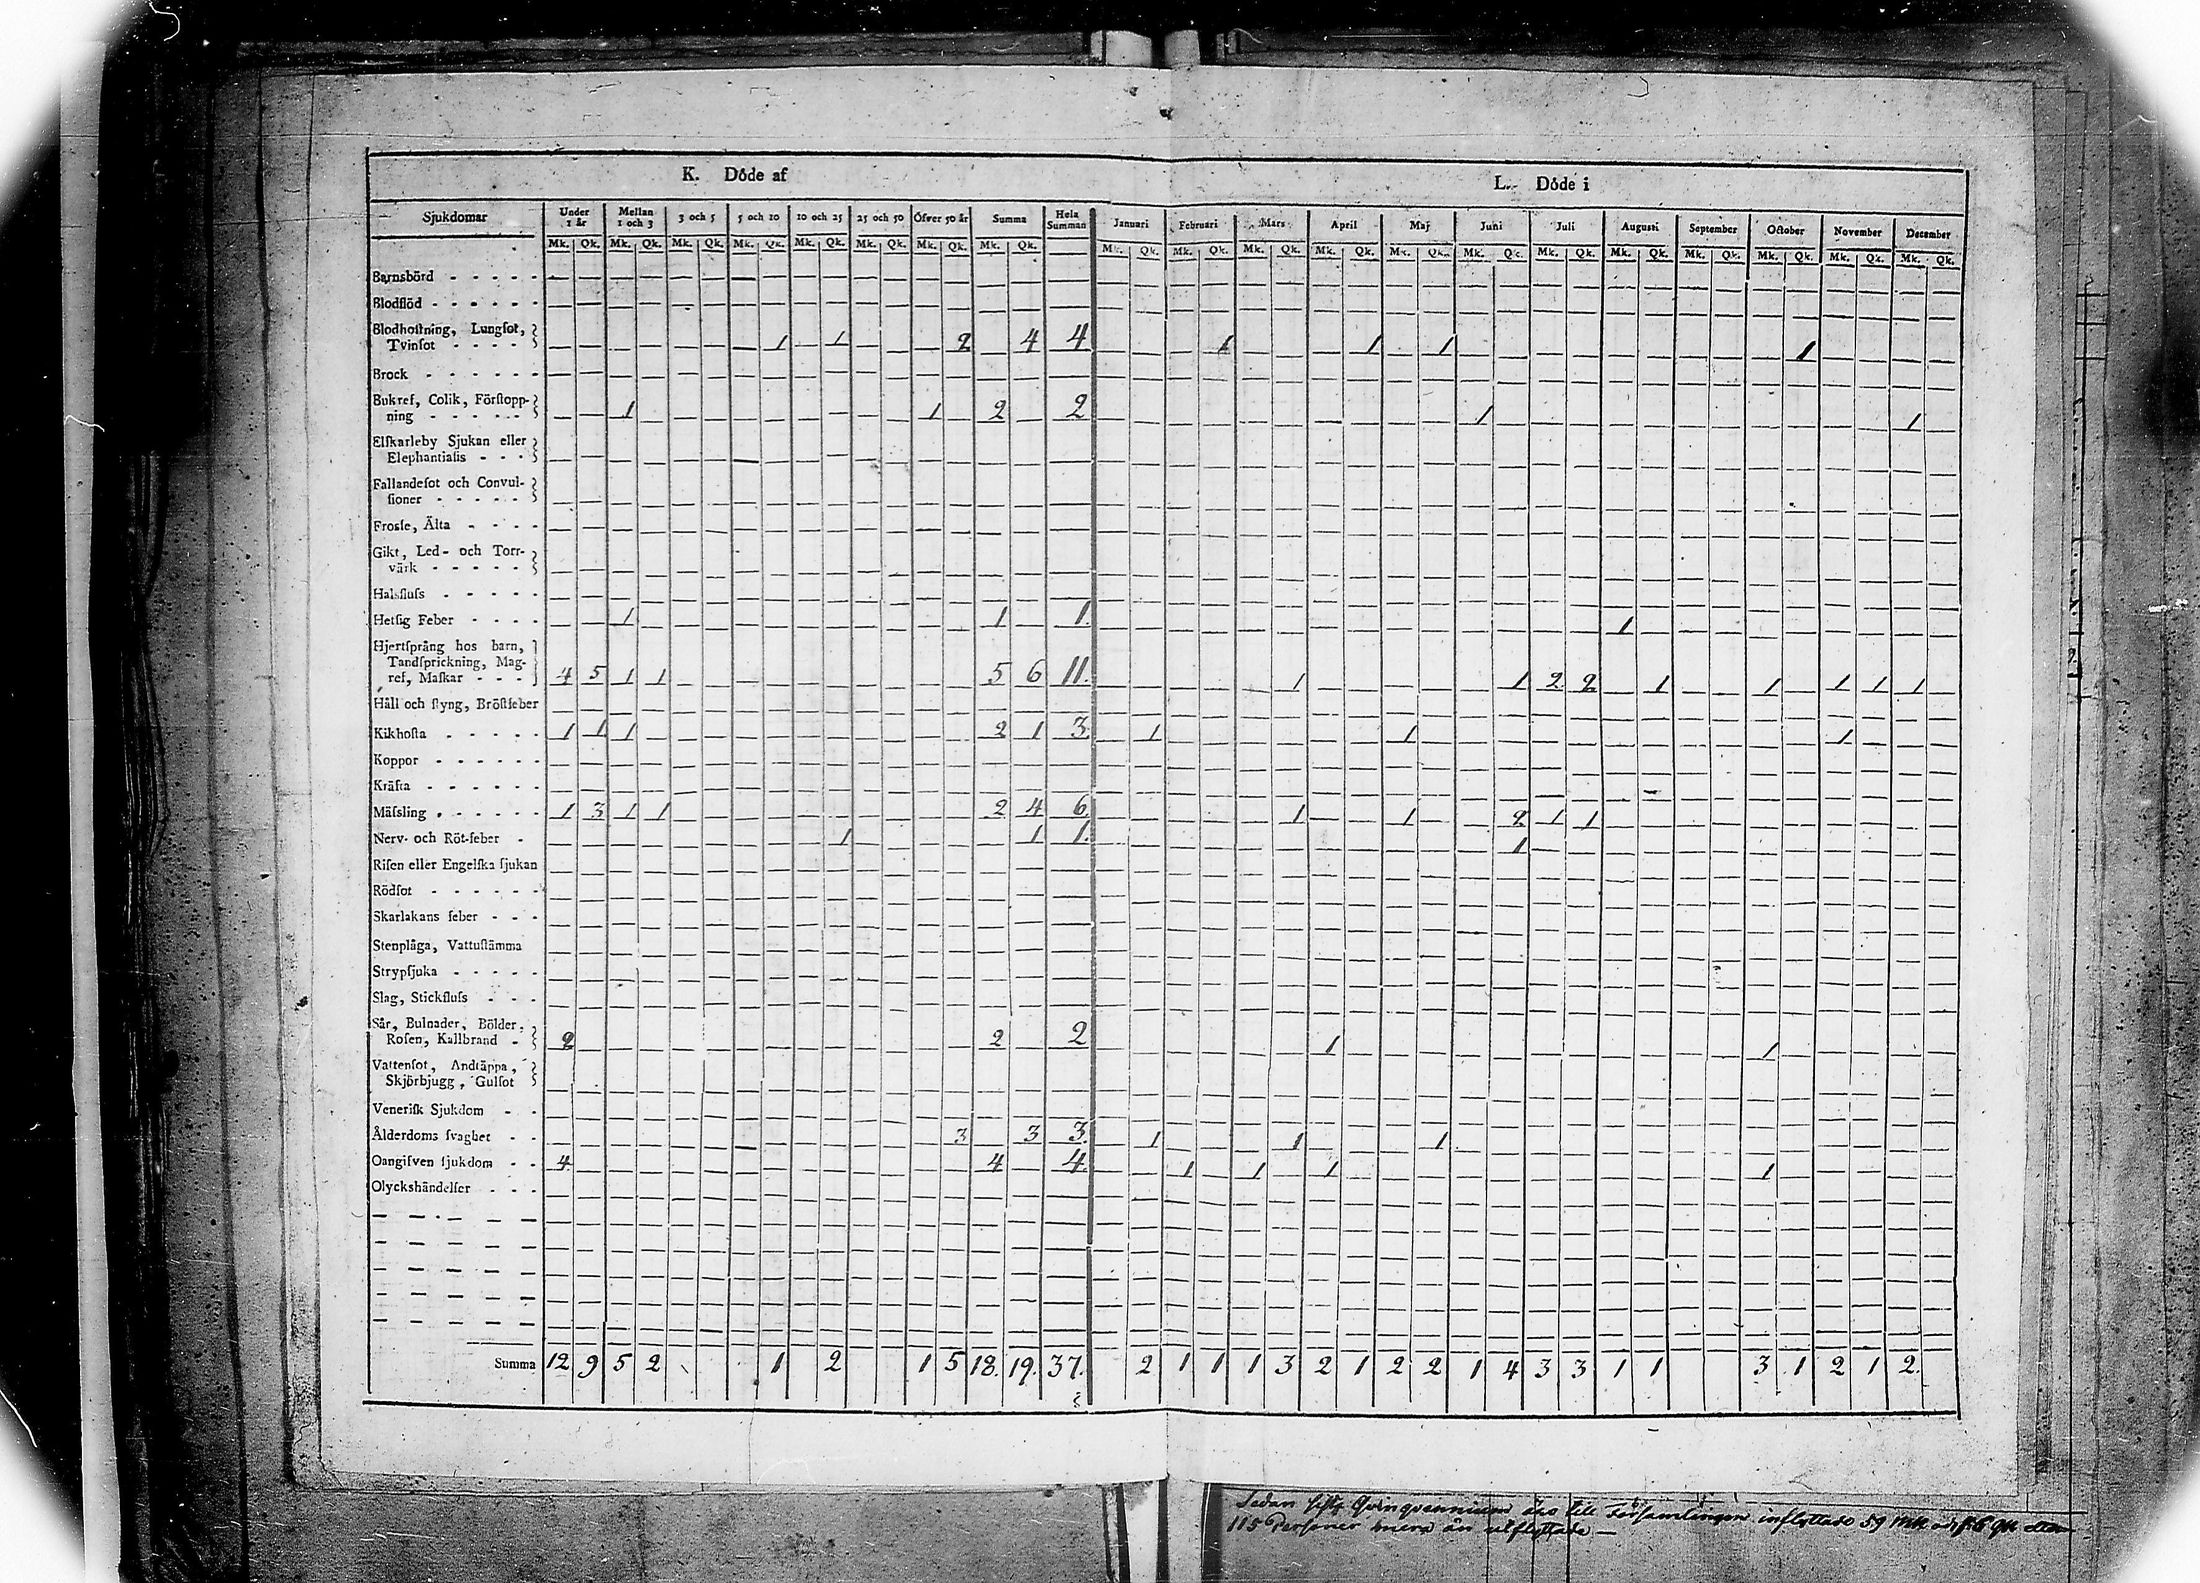 K. Döde af
L. Döde i
Sjukdomar | Under 1 år | Mellan 1 och 3 | 3 och 5 | 5 och 10 | 10 och 25 | 25 och 50 | Öfver 50 år | Summa | Hela Summan | Januari | Februari | Mars | April | Maj | Juni | Juli | Augusti | September | October | November | December
Mk. Qk. Mk. Qk. Mk. Qk. Mk. Qk. Mk. Qk. Mk. Qk. Mk. Qk. Mk. Qk. Mk. Qk. Mk. Qk. Mk. Qk. Mk. Qk. Mk. Qk. Mk. Qk. Mk. Qk. Mk. Qk. Mk. Qk. Mk. Qk. Mk. Qk. Mk. Qk.
Barnsbörd - - - - -
Blodflöd - - - - - -
Blodhoſtning, Lungſot,
Tvinſot - - - - 1 1 2 4 4 1 1 1 1
Brock - - - - - -
Bukref, Colik, Förſtopp-
ning - - - - - 1 1 2 2 1 1
Elſkarleby Sjukan eller
Elephantiaſis - - -
Fallandeſot och Convul-
ſioner - - - - -
Frosſe, Älta - - - -
Gikt, Led- och Torr-
värk - - - - -
Halsfluſs - - - - -
Hetſig Feber - - - - 1 1 1. 1
Hjertſprång hos barn,
Tandſprickning, Mag-
ref, Maſkar - - - 4 5 1 1 5 6 11. 1 1 2 2 1 1 1 1 1
Håll och ſtyng, Bröſtfeber
Kikhoſta - - - - - 1 1 1 2 1 3. 1 1 1
Koppor - - - - - -
Kräfta - - - - - -
Mäſsling - - - - - - 1 3 1 1 2 4 6. 1 1 2 1 1
Nerv- och Röt-feber - 1 1 1. 1
Riſen eller Engelſka ſjukan
Rödſot - - - - - -
Skarlakans feber - - -
Stenplåga, Vattuſtämma
Strypſjuka - - - - -
Slag, Stickfluſs - - -
Sår, Bulnader, Bölder,
Roſen, Kallbrand - 2 2 2 1 1
Vattenſot, Andtäppa,
Skjörbjugg, Gulſot
Veneriſk Sjukdom - -
Ålderdoms ſvaghet - - 3 3 3. 1 1 1
Oangifven ſjukdom - - 4 4 4. 1 1 1 1
Olyckshändelſer - - -
Summa 12 9 5 2 1 2 1 5 18. 19. 37. 2 1 1 1 3 2 1 2 2 1 4 3 3 1 1 3 1 2 1 2
Sedan ſiſta Qvinqvennium till Förſamlingen inflyttade 59 Mk och Qk
115 Perſoner mera än utflyttade —